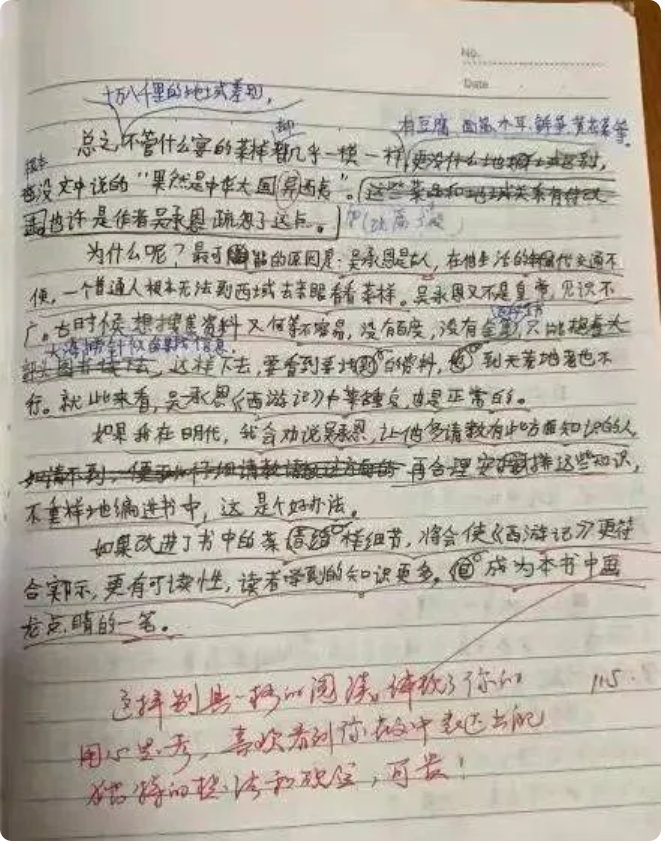 No.
Date
十万八千里的地域差别,
总之,不管什么宴的菜样都几乎一模一样,
有豆腐、面筋、木耳、鲜笋、黄花菜等。
更没什么地域区别,
根本
也没文中说的"果然是中华大国异西夷"。
也许是作者吴承恩疏忽了这点。
为什么呢?最可能的原因是:吴承恩是古人,在他生活的年代交通不
便,一个普通人根本无法到西域去亲眼看看菜样。吴承恩又不是皇帝,见识不
广。古时候想搜集资料又何等不容易,没有百度,没有
大海捞针似的 信息。
这样下去,要看到要找到的资料,到天荒地老也不
行。就此来看,吴承恩《西游记》中菜重复,也是正常的。
如果我在明代,我会劝说吴承恩,让他多请教有此方面知识的人,
再合理安排这些知识,
不重样地编进书中,这是个好办法。
如果改进了书中的菜样细节,将会使《西游记》更符
合实际,更有可读性,读者学到的知识更多。成为本书中画
龙点睛的一笔。
这样别具一格的阅读,体现了你的
用心思考,喜欢看到你在文中表达出的
独特的想法和观点,可贵!
11.5